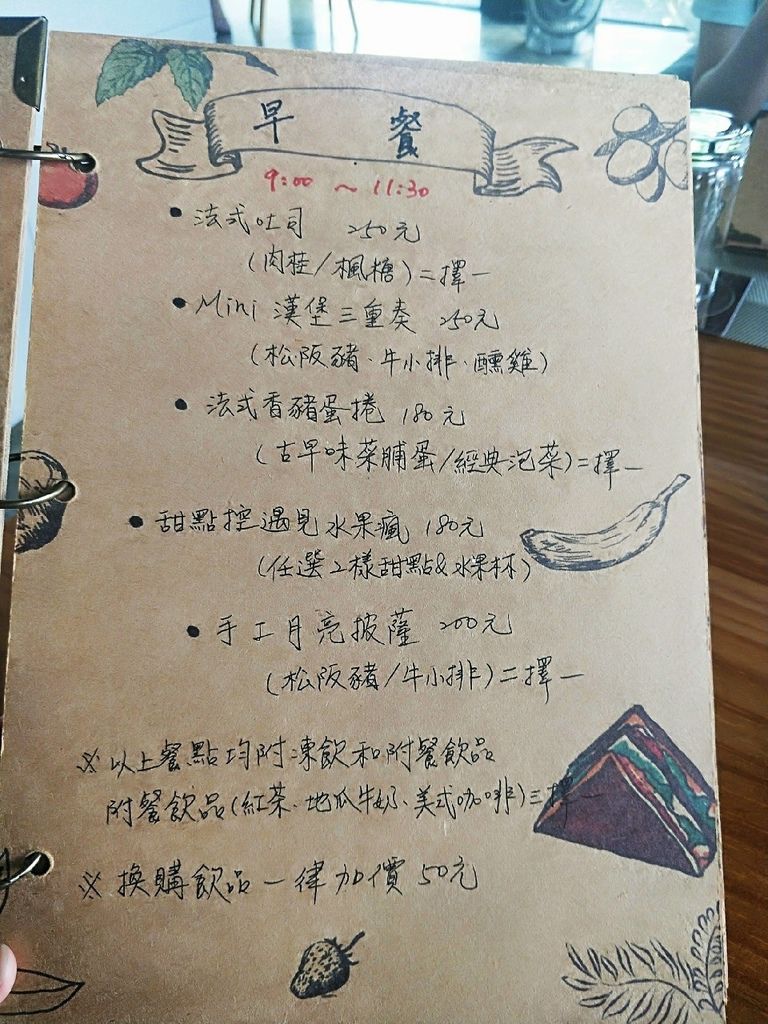 早餐
9:00 ~ 11:30
• 法式吐司 250元
(肉桂/楓糖)二擇一
• Mini 漢堡三重奏 250元
(松阪豬、牛小排、醺雞)
• 法式香豬蛋捲 180元
(古早味菜脯蛋/經典泡菜)二擇一
• 甜點控遇見水果瘋 180元
(任選2樣甜點&水果杯)
• 手工月亮披薩 200元
(松阪豬/牛小排)二擇一
※ 以上餐點均附湅飲和附餐飲品
附餐飲品(紅茶、地瓜牛奶、美式咖啡)三擇一
※ 換購飲品一律加價50元